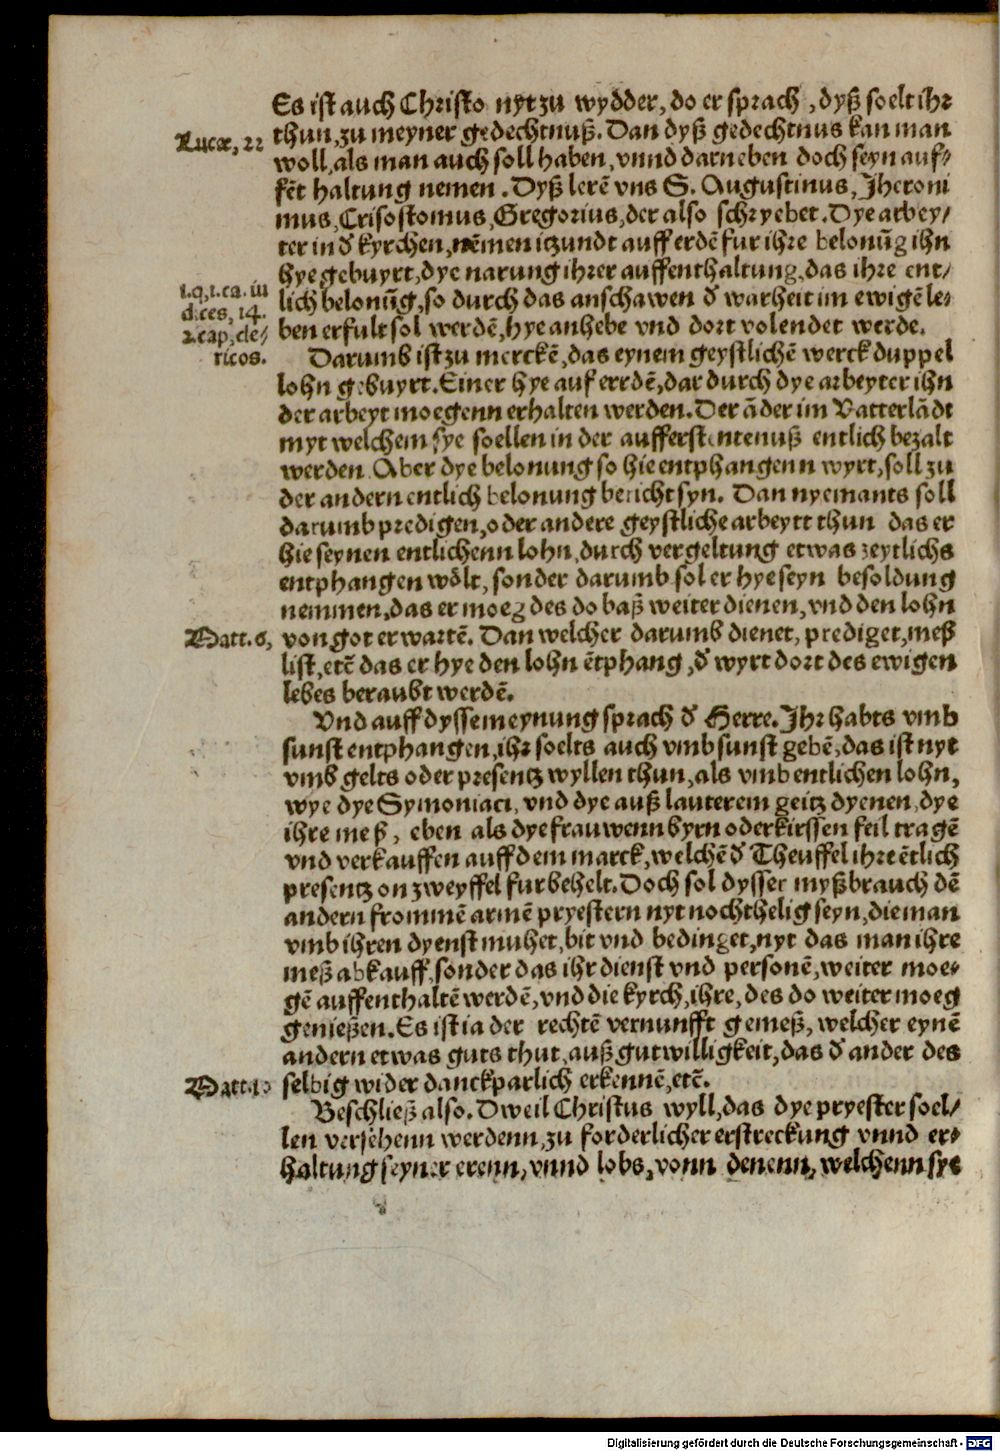 Es ist auch Christo nyt zu wydder, do er sprach, dyß soelt ihr
Lucæ, 22
thun, zu meyner gedechtnuß. Dan dyß gedechtnus kan man
woll, als man auch soll haben, vnnd darneben doch seyn auf-
fēt haltung nemen. Dyß lerē vns S. Augustinus, Jheroni
mus, Crisostomus, Gregorius, der also schryebet. Dye arbey-
ter in d̄ kyrchen, nēmen itzundt auff erdē fur ihre belonūg ihn
hye gebuyrt, dye narung ihrer auffenthaltung, das ihre ent-
1.q,1.ca. iii
lich belonūg, so durch das anschawen d̄ warheit im ewigē le-
dices, 14.
ben erfult sol werdē, hye anhebe vnd dort volendet werde.
2.cap, cle-
ricos.
Darumb ist zu merckē, das eynem geystlichē werck duppel
lohn gebuyrt. Einer hye auf errdē, dar durch dye arbeyter ihn
der arbeyt moegenn erhalten werden. Der āder im Vatterlādt
myt welchem sye soellen in der aufferstentenuß entlich bezalt
werden. Aber dye belonung so hie entphangenn wyrt, soll zu
der andern entlich belonung bericht syn. Dan nyemants soll
darumb predigen, oder andere geystliche arbeytt thun das er
hie seynen entlichenn lohn, durch vergeltung etwas zeytlichs
entphangen wölt, sonder darumb sol er hye seyn besoldung
nemmen, das er moeg des do baß weiter dienen, vnd den lohn
Matt. 6,
von got erwartē. Dan welcher darumb dienet, prediget, meß
list, etē das er hye den lohn ētphang, d̄ wyrt dort des ewigen
lebēs beraubt werdē.
Vnd auff dysse meynung sprach d̄ Herre. Jhr habts vmb
sunst entphangen, ihr soelts auch vmb sunst gebē, das ist nyt
vmb gelts oder presentz wyllen thun, als vmb entlichen lohn,
wye dye Symoniaci, vnd dye auß lauterem geitz dyenen, dye
ihre meß, eben als dye frauwenn byrn oder kirssen feil tragē
vnd verkauffen auff dem marck, welchē d̄ Theuffel ihre ētlich
presentz on zweyffel furbehelt. Doch sol dysser myßbrauch dē
andern frommē armē pryestern nyt nochthelig seyn, die man
vmb ihren dyenst muhet, bit vnd bedinget, nyt das man ihre
meß abkauff, sonder das ihr dienst vnd personē, weiter moe-
gē auffenthaltē werdē, vnd die kyrch, ihre, des do weiter moeg
genießen. Es ist ia der rechtē vernunfft gemeß, welcher eynē
andern etwas guts thut, auß gutwilligkeit, das d̄ ander des
Matt. 10
selbig wider danckparlich erkennē, etē.
Beschließ also. Dweil Christus wyll, das dye pryester soel-
len versehenn werdenn, zu forderlicher erstreckung vnnd er-
haltung seyner erenn, vnnd lobs, vonn denenn, welchenn sye
Digitalisierung gefördert durch die Deutsche Forschungsgemeinschaft - DFG